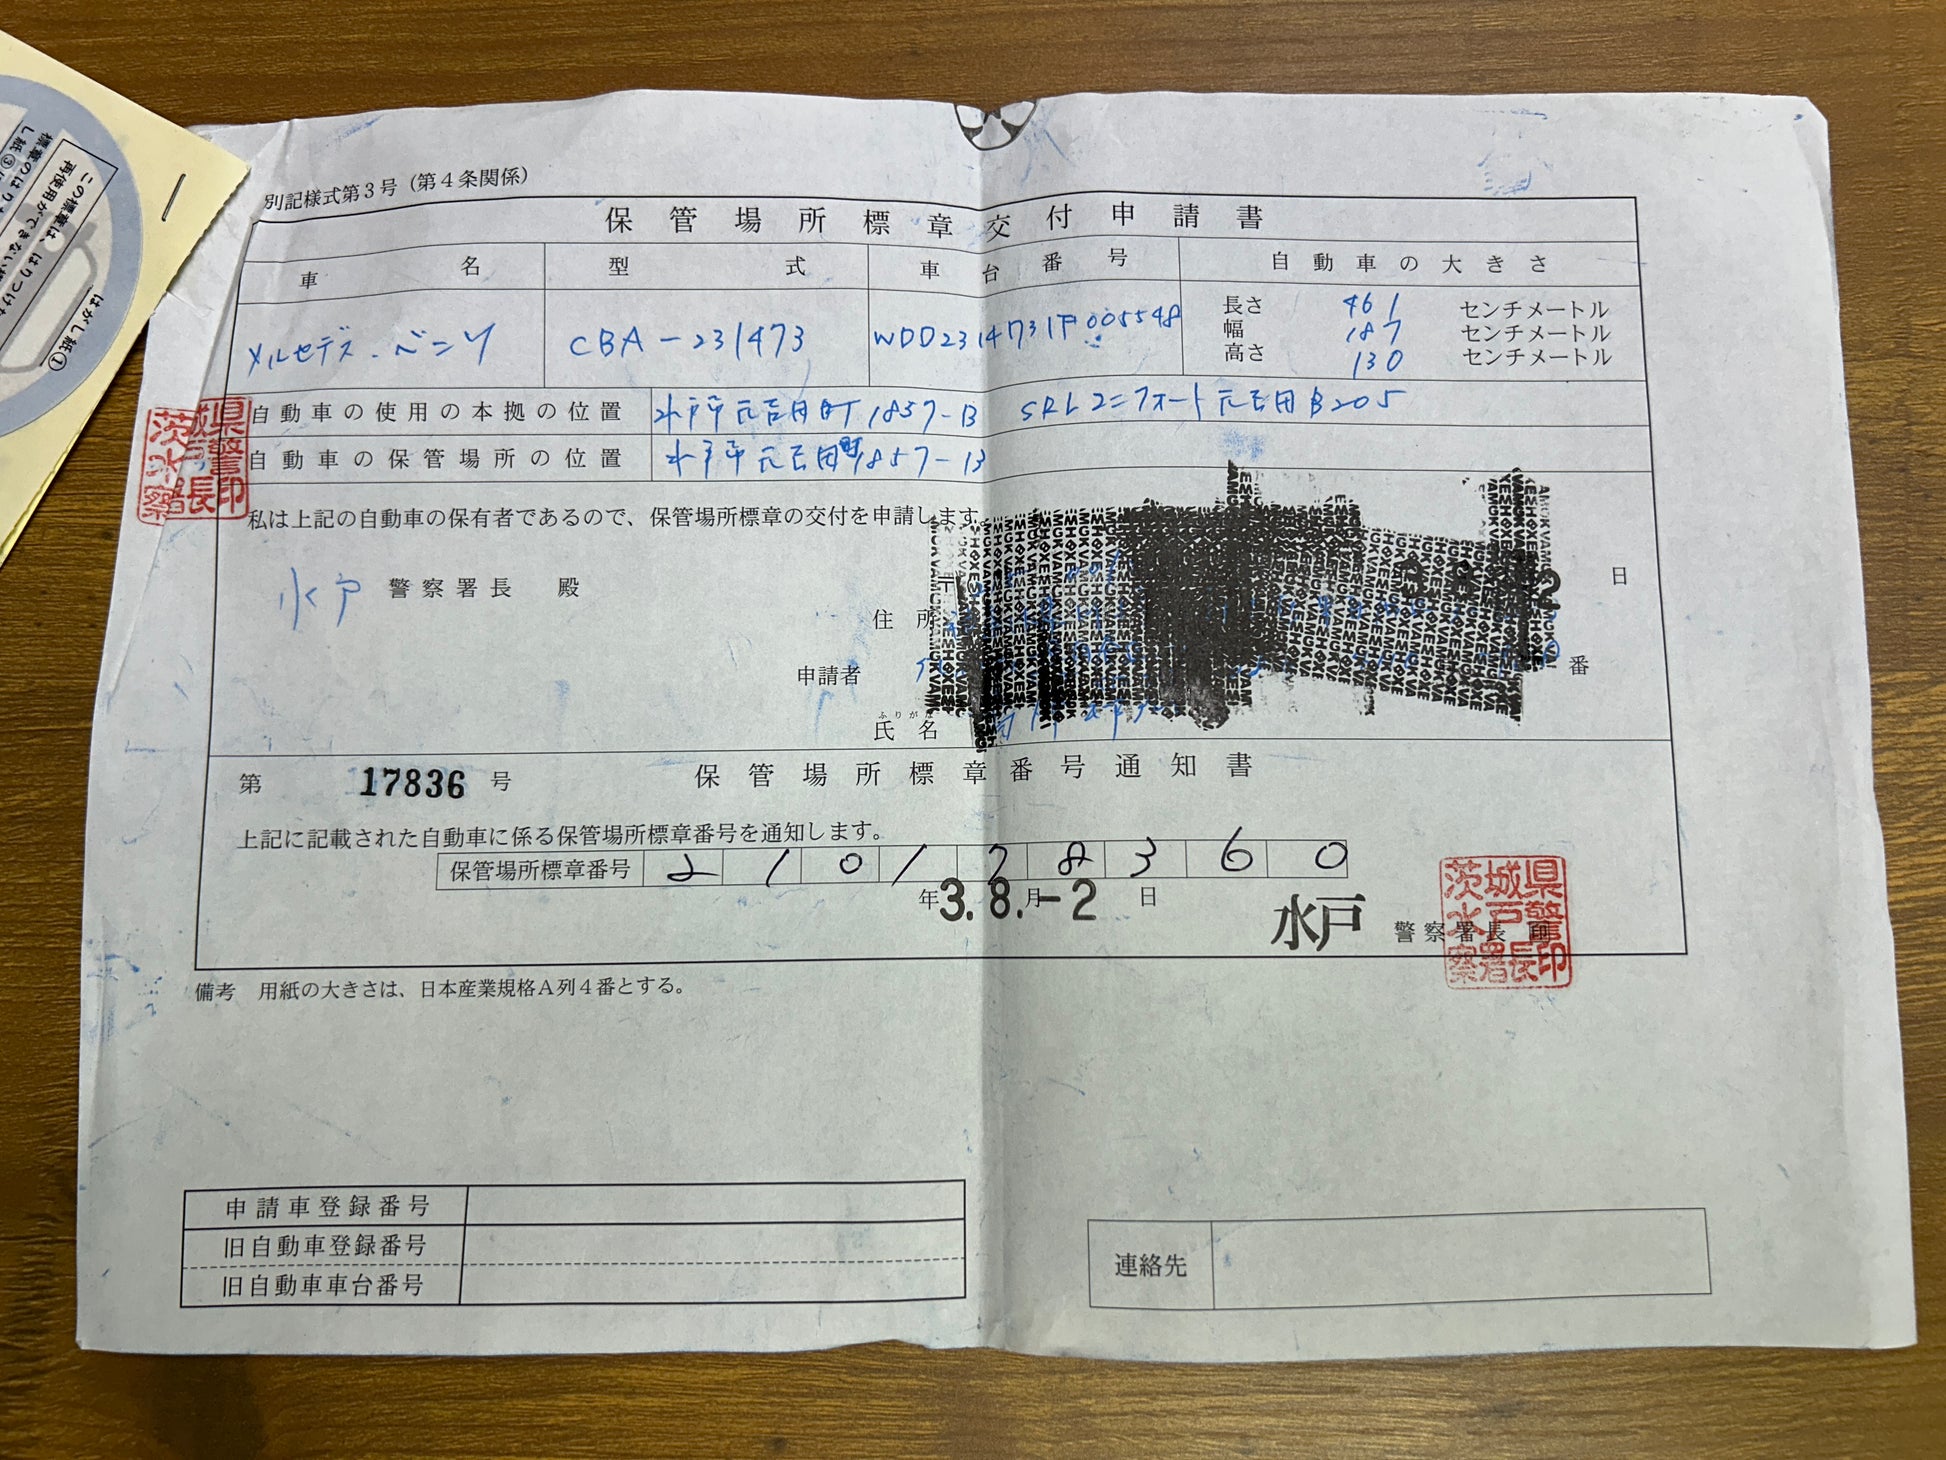 別記様式第3号（第4条関係）
保管場所標章交付申請書
車名 型式 車台番号 自動車の大きさ
メルセデス・ベンツ CBA-231473 WDD2314731F005548
長さ 461 センチメートル
幅 187 センチメートル
高さ 130 センチメートル
自動車の使用の本拠の位置 水戸市元吉田町1857-13 SRLコンフォート元吉田B205
自動車の保管場所の位置 水戸市元吉田町1857-13
茨城県警
水戸警察署長印
私は上記の自動車の保有者であるので、保管場所標章の交付を申請します。
日
水戸 警察署長 殿
〒
住所
申請者
番
ふりがな
氏名
第 17836 号 保管場所標章番号通知書
上記に記載された自動車に係る保管場所標章番号を通知します。
保管場所標章番号 210178360
年 3.8.-2 月 日
水戸 警察署長 印
茨城県警
水戸警察署長印
備考 用紙の大きさは、日本産業規格A列4番とする。
申請車登録番号
旧自動車登録番号
旧自動車車台番号
連絡先
この標章は、はりつけた
再使用ができない
標章のはり
し紙③
はがし紙①